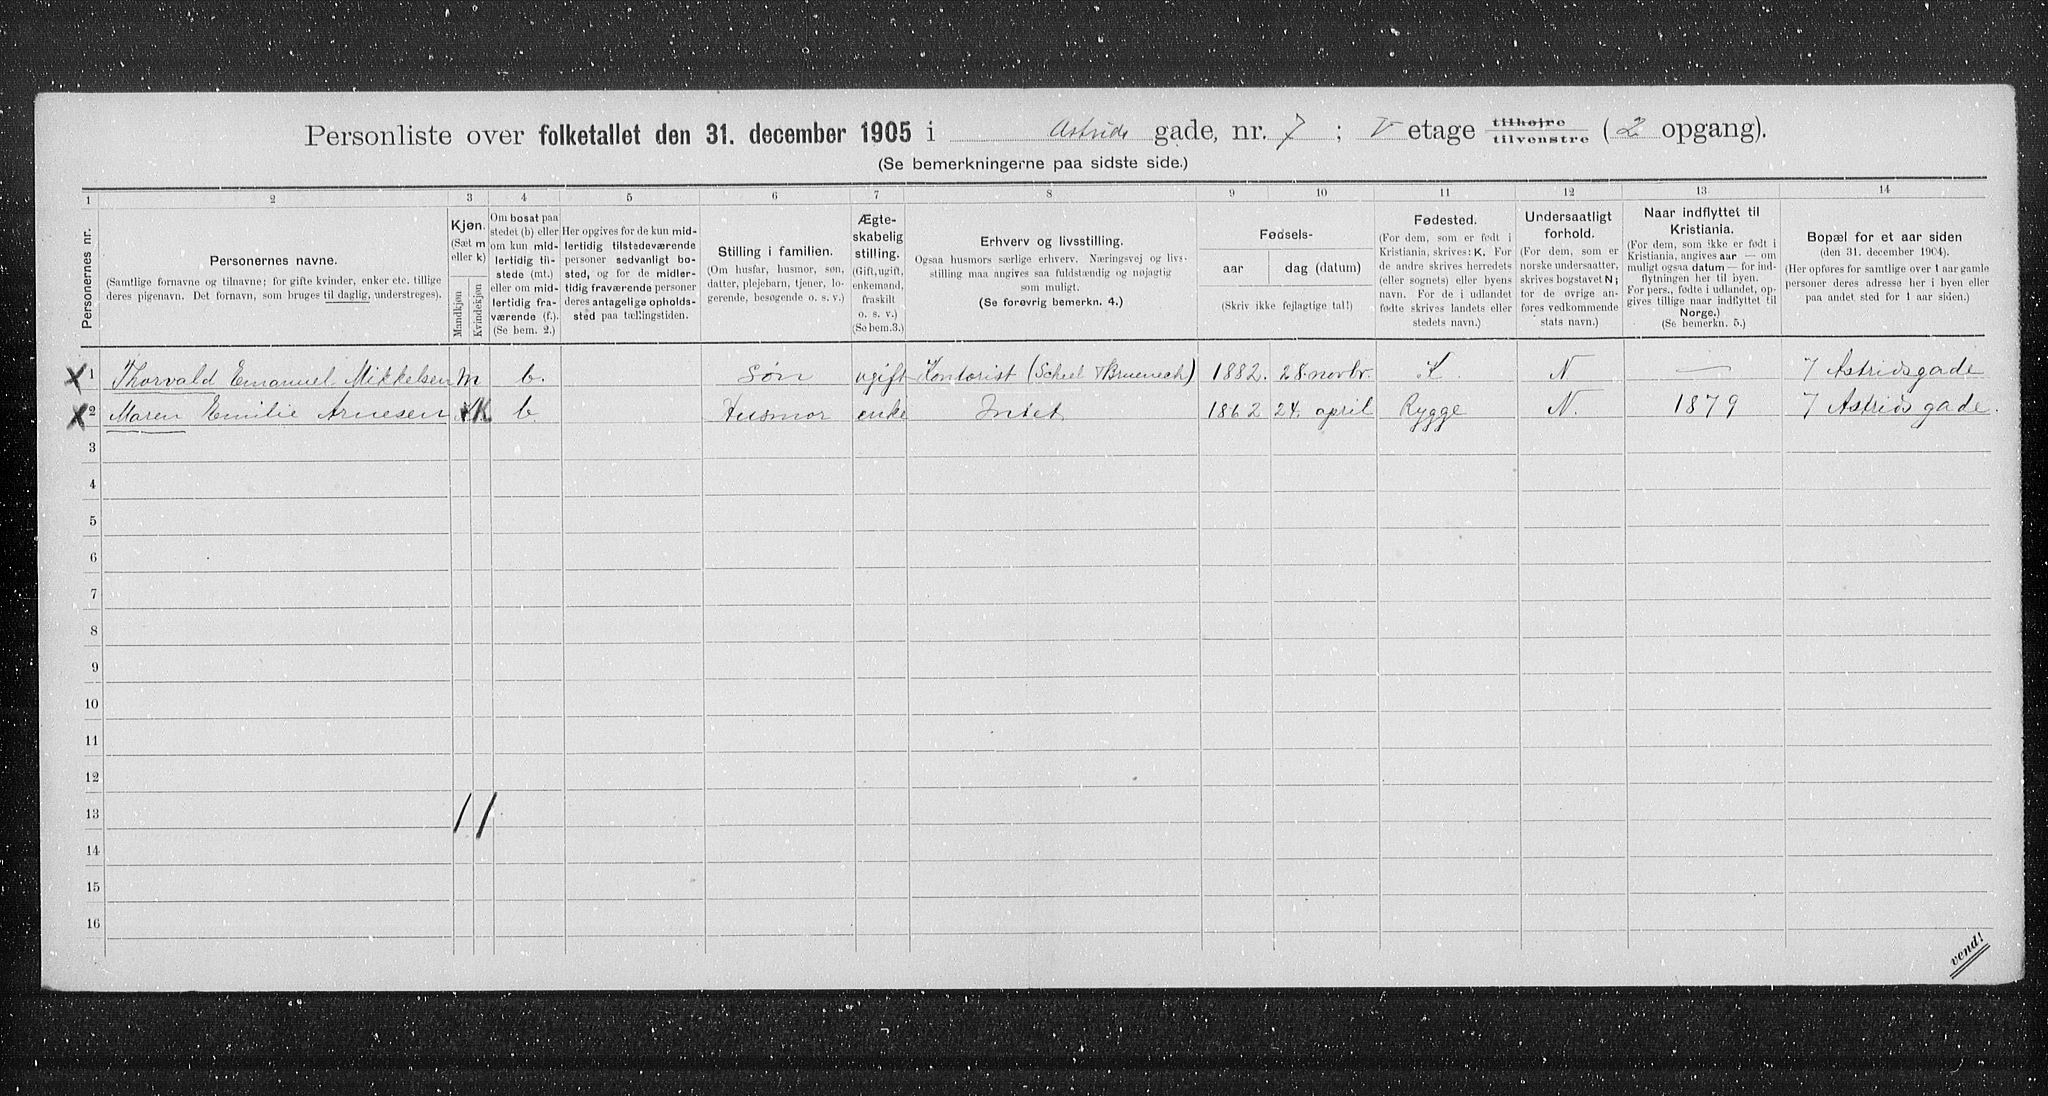 Personliste over folketallet den 31. december 1905 i Astrids gade, nr. 7; V etage tilhøjre tilvenstre (2 opgang).
(Se bemerkningerne paa sidste side.)
1 2 3 4 5 6 7 8 9 10 11 12 13 14
Personernes nr.
Personernes navne.
(Samtlige fornavne og tilnavne; for gifte kvinder, enker etc. tillige
deres pigenavn. Det fornavn, som bruges til daglig, understreges).
Kjøn.
(Sæt m
eller k)
Mandkjøn
Kvindekjøn
Om bosat paa
stedet (b) eller
om kun mid-
lertidig til-
stede (mt.)
eller om mid-
lertidig fra-
værende (f.).
(Se bem. 2.)
Her opgives for de kun mid-
lertidig tilstedeværende
personer sedvanligt bo-
sted, og for de midler-
tidig fraværende personer
deres antagelige opholds-
sted paa tællingstiden.
Stilling i familien.
(Om husfar, husmor, søn,
datter, plejebarn, tjener, lo-
gerende, besøgende o. s. v.)
Ægte-
skabelig
stilling.
(Gift, ugift,
enkemand,
fraskilt
o. s. v.)
(Se bem. 3.)
Erhverv og livsstilling.
Ogsaa husmors særlige erhverv. Næringsvej og livs-
stilling maa angives saa fuldstændig og nøjagtig
som muligt.
(Se forøvrig bemerkn. 4.)
Fødsels-
aar
dag (datum)
(Skriv ikke fejlagtige tal!)
Fødested.
(For dem, som er født i
Kristiania, skrives: K. For
de andre skrives herredets
(eller sognets) eller byens
navn. For de i udlandet
fødte skrives landets eller
stedets navn.)
Undersaatligt
forhold.
(For dem, som er
norske undersaatter,
skrives bogstavet N;
for de øvrige an-
føres vedkommende
stats navn.)
Naar indflyttet til
Kristiania.
(For dem, som ikke er født i
Kristiania, angives aar — om
muligt ogsaa datum — for ind-
flytningen her til byen.
For pers., fødte i udlandet, op-
gives tillige naar indflyttet til
Norge.)
(Se bemerkn. 5.)
Bopæl for et aar siden
(den 31. december 1904).
(Her opføres for samtlige over 1 aar gamle
personer deres adresse her i byen eller
paa andet sted for 1 aar siden.)
X 1 Thorvald Emanuel Mikkelsen m b. Søn ugift Kontorist (Scheel & Bruenech) 1882. 28. novbr. K. N — 7 Astridsgade
X 2 Maren Emilie Arnesen K b Husmor enke Intet 1862 24. april Rygge N. 1879 7 Astrids gade.
3
4
5
6
7
8
9
10
11
12
13 / /
14
15
16
vend!